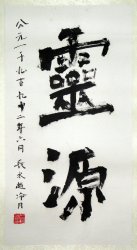 靈源
公元一千九百九十二年六月